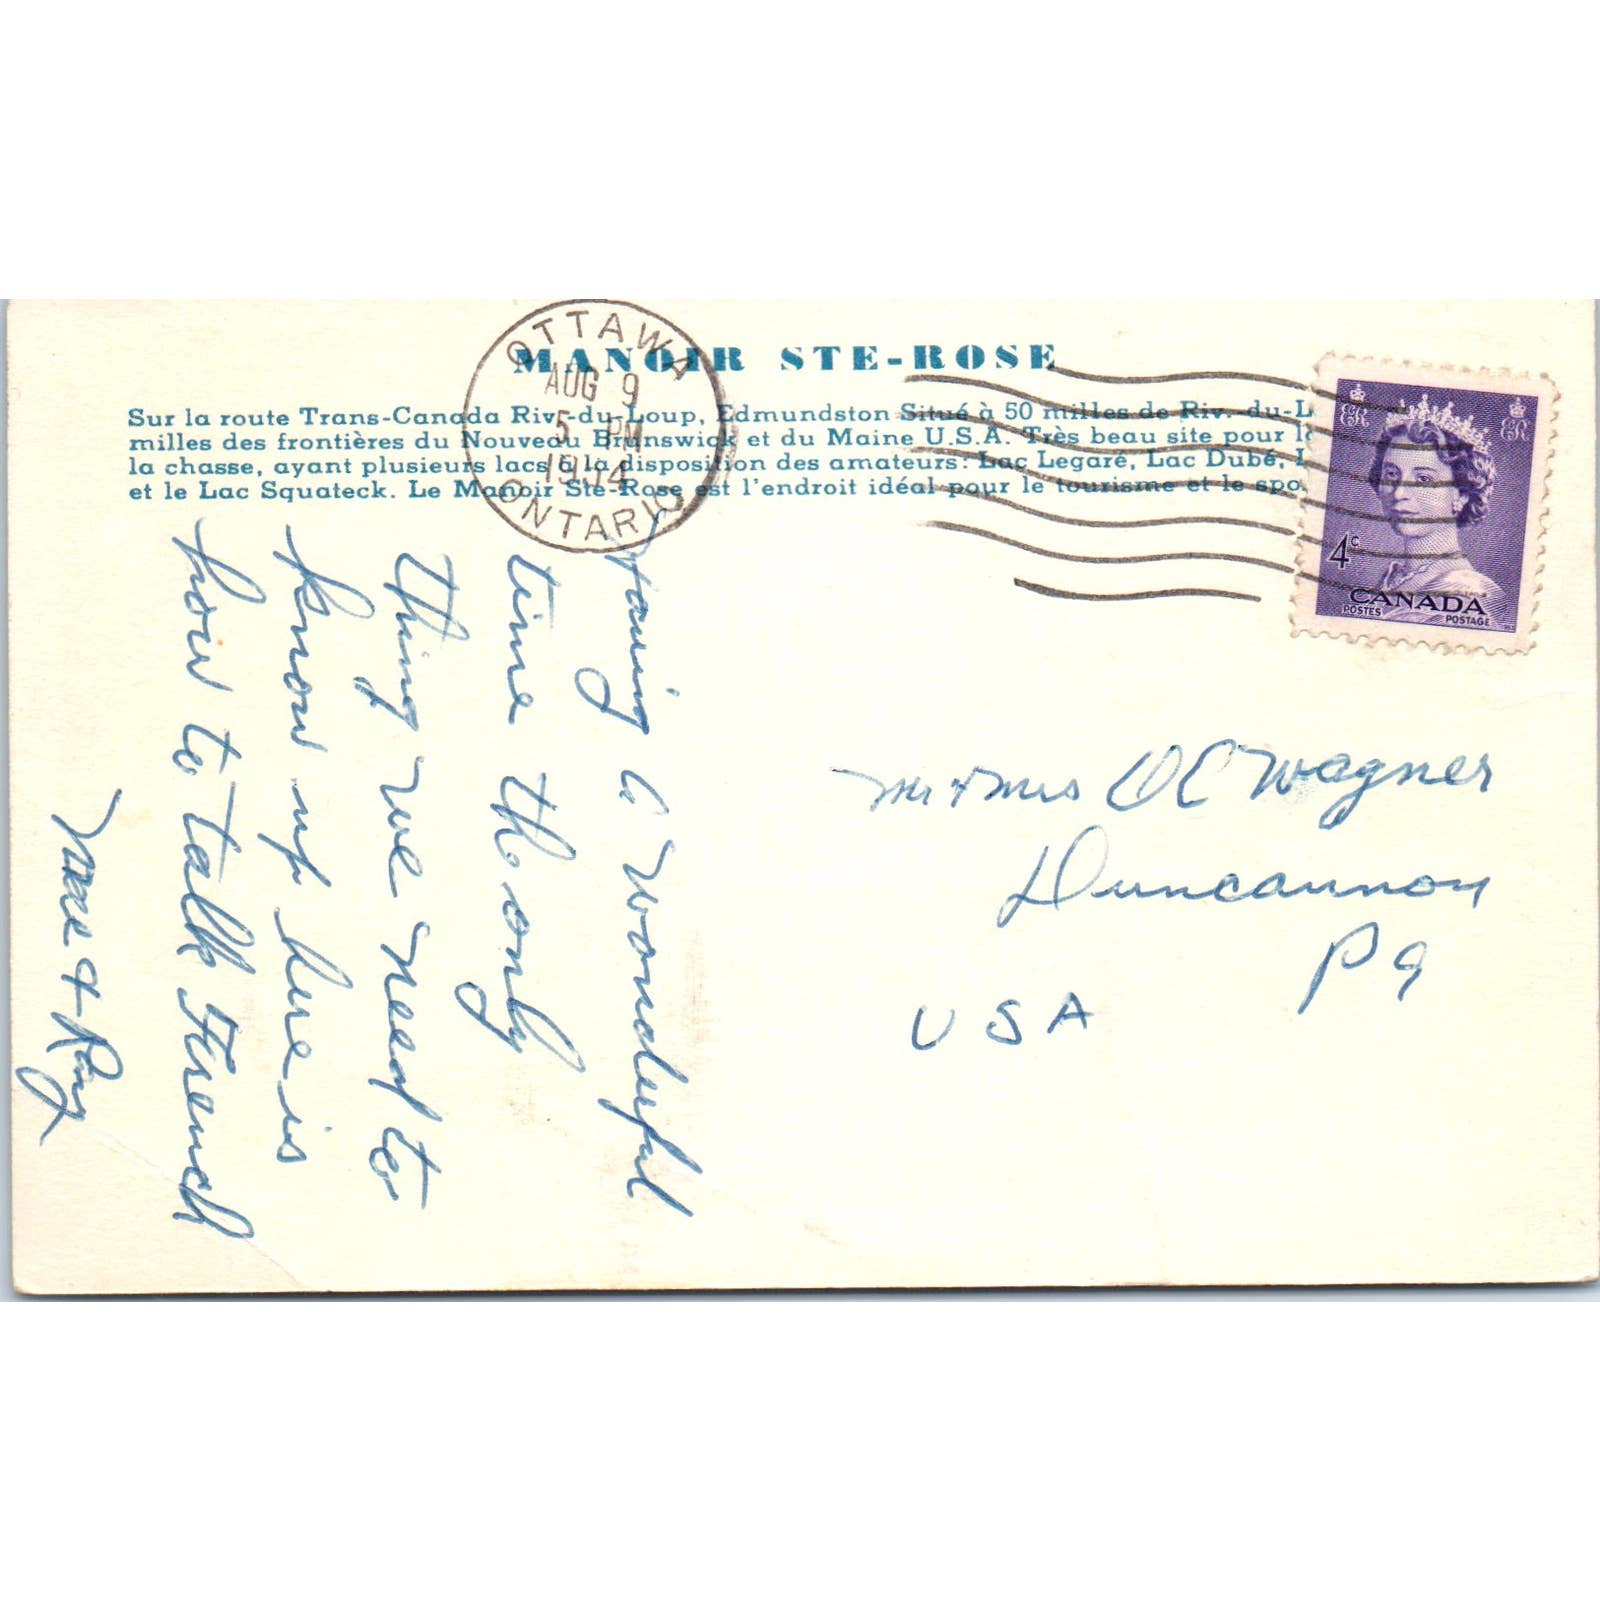 MANOIR STE-ROSE
Sur la route Trans-Canada Riv-du-Loup, Edmundston Situé à 50 milles de Riv.-du-L
milles des frontières du Nouveau Brunswick et du Maine U.S.A. Très beau site pour l
la chasse, ayant plusieurs lacs à la disposition des amateurs: Lac Legaré, Lac Dubé,
et le Lac Squateck. Le Manoir Ste-Rose est l'endroit idéal pour le tourisme et le spo
OTTAWA
AUG 9
5 PM
ONTARIO
4c
CANADA
POSTES POSTAGE
Having a wonderful
time the only
thing we need to
know up here is
how to talk French
& Ray
Mr & Mrs O C Wagner
Duncannon
Pa
USA